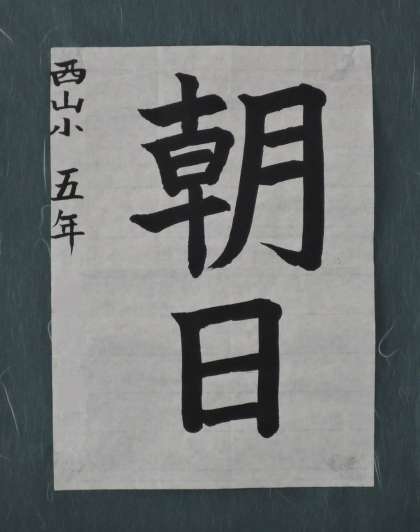 朝日
西山小 五年